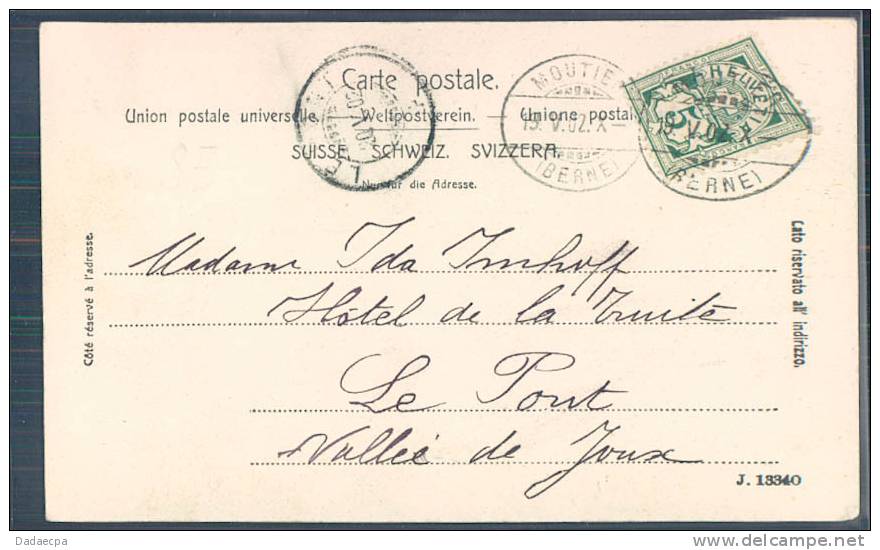 Carte postale.
Union postale universelle. — Weltpostverein. — Unione postal
SUISSE. SCHWEIZ. SVIZZERA.
Nur für die Adresse.
MOUTIE
19. V. 02. X—
(BERNE)
HELVETI
FRANCO
19. V. 02. X
(BERNE)
Côté réservé à l'adresse.
Lato riservato all' indirizzo.
Madame Ida Imhoff
Hôtel de la Truite
Le Pont
Vallée de Joux
J. 13340
Dadaecpa
delcampe.net